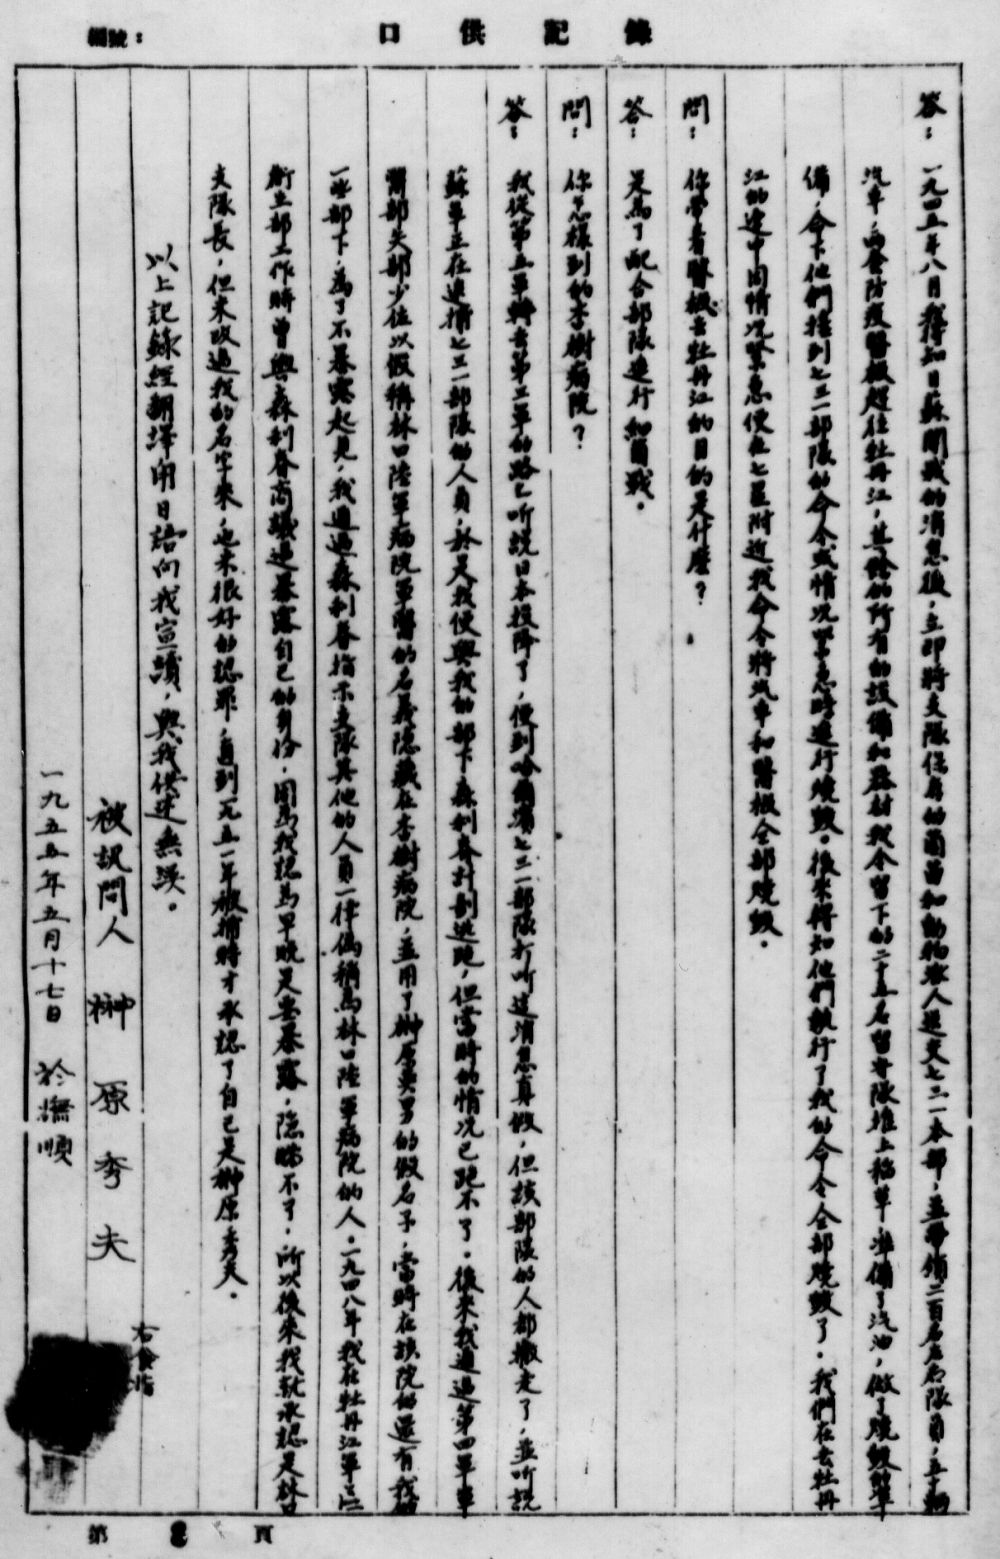 口供記錄
編號：
答：一九四五年八月獲知日蘇開戰的消息後，立即將支隊保存的菌苗和動物派人送交七三一本部，並帶領二百名左右隊員，五十輛
汽車，兩套防疫醫療趕往牡丹江，其餘的所有的設備和器材我令留下的二十五名留守隊堆上稻草，準備了汽油，做了燒毀的準
備，命下他們接到七三一部隊的命令或情況緊急時進行燒毀。後來得知他們執行了我的命令全部燒毀了。我們在去牡丹
江的途中因情況緊急便在七星附近我命令將汽車和醫療全部燒毀。
問：你帶着醫療去牡丹江的目的是什麼？
答：是為了配合部隊進行細菌戰。
問：你怎樣到的李樹病院？
答：我從第五軍轉去第三軍的路上听說日本投降了，便到哈爾濱七三一部隊打听這消息真假，但該部隊的人都撤走了，並听說
蘇軍正在追捕七三一部隊的人員，於是我便與我的部下森利春計劃逃跑，但當時的情況已跑不了。後來我通過第四軍軍
醫部失部少佐以假稱林口陸軍病院軍醫的名義隱藏在李樹病院，並用了榊原英男的假名子，當時在該院的還有我的
一些部下，為了不暴露起見，我通過森利春指示支隊其他的人員一律偽稱為林口陸軍病院的人。一九四八年我在牡丹江軍區
衛生部工作時曾與森利春商議過暴露自己的身份，因為我認為早晚是要暴露，隱瞞不了，所以後來我就承認是林口
支隊長，但未改過我的名字來，也未很好的認罪，直到一九五一年被捕時才承認了自己是榊原秀夫。
以上記錄經翻譯用日語向我宣讀，與我供述無誤。
被訊問人 榊原秀夫
右食指
一九五五年五月十七日 於撫順
第 頁